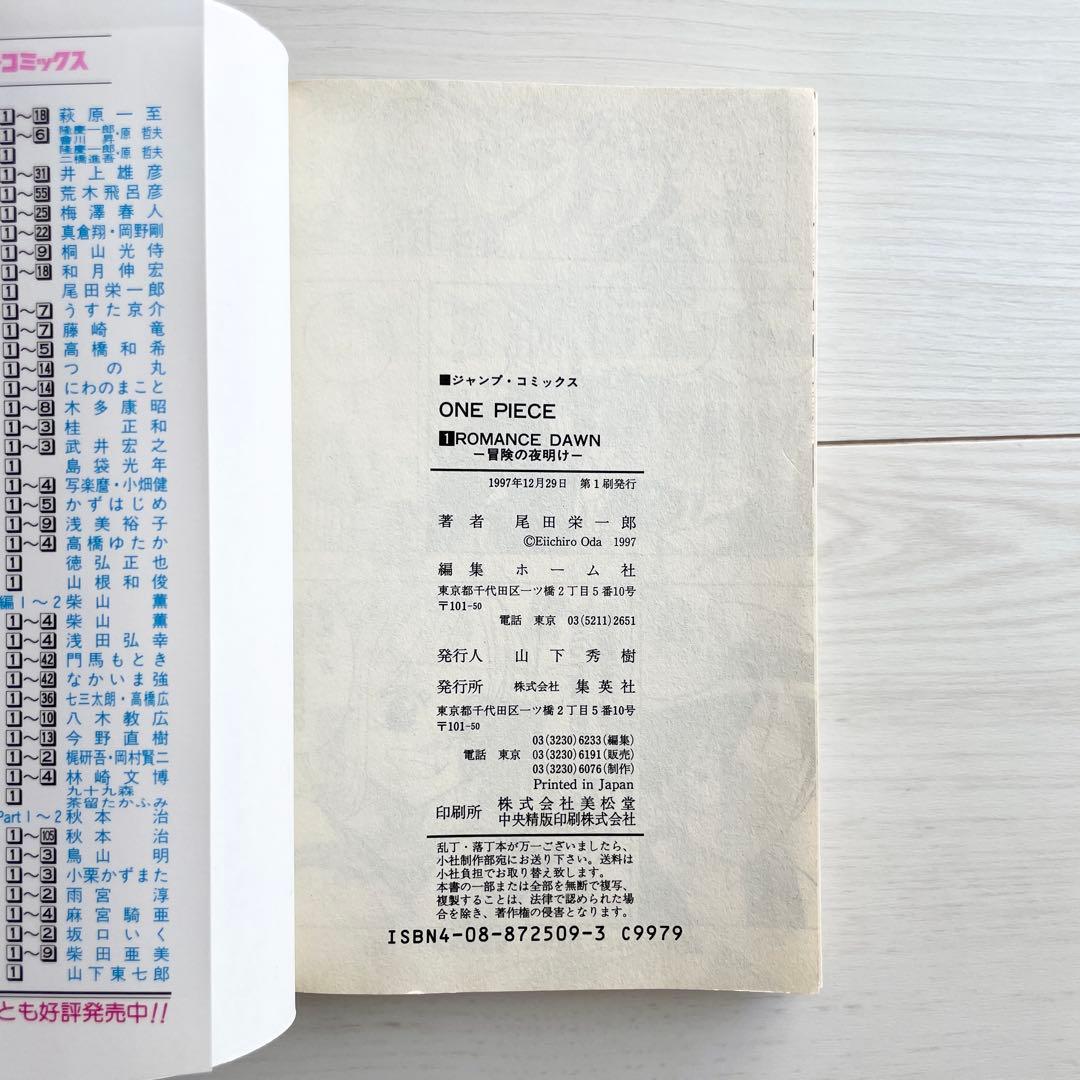 コミックス
1～18 萩原一至
1～6 隆慶一郎・原哲夫 會川昇
1 隆慶一郎・原哲夫 二橋進吾
1～31 井上雄彦
1～55 荒木飛呂彦
1～25 梅澤春人
1～22 真倉翔・岡野剛
1～9 桐山光侍
1～18 和月伸宏
1 尾田栄一郎
1～7 うすた京介
1～7 藤崎竜
1～5 高橋和希
1～14 つの丸
1～14 にわのまこと
1～8 木多康昭
1～3 桂正和
1～3 武井宏之
1 島袋光年
1～4 写楽麿・小畑健
1～5 かずはじめ
1～9 浅美裕子
1～4 高橋ゆたか
1 徳弘正也
1 山根和俊
編1～2 柴山薫
1～4 柴山薫
1～4 浅田弘幸
1～42 門馬もとき
1～42 なかいま強
1～36 七三太朗・高橋広
1～10 八木教広
1～13 今野直樹
1～2 梶研吾・岡村賢二
1～4 林崎文博
1 九十九森 茶留たかふみ
Part1～2 秋本治
1～105 秋本治
1～3 鳥山明
1～3 小栗かずまた
1～2 雨宮淳
1～4 麻宮騎亜
1～2 坂口いく
1～9 柴田亜美
1 山下東七郎
とも好評発売中!!
■ジャンプ・コミックス
ONE PIECE
1 ROMANCE DAWN
－冒険の夜明け－
1997年12月29日 第1刷発行
著者 尾田栄一郎
©Eiichiro Oda 1997
編集 ホーム社
東京都千代田区一ツ橋2丁目5番10号
〒101-50
電話 東京 03(5211)2651
発行人 山下秀樹
発行所 株式会社 集英社
東京都千代田区一ツ橋2丁目5番10号
〒101-50
03(3230)6233(編集)
電話 東京 03(3230)6191(販売)
03(3230)6076(制作)
Printed in Japan
印刷所 株式会社美松堂
中央精版印刷株式会社
乱丁・落丁本が万一ございましたら、
小社制作部宛にお送り下さい。送料は
小社負担でお取り替え致します。
本書の一部または全部を無断で複写、
複製することは、法律で認められた場
合を除き、著作権の侵害となります。
ISBN4-08-872509-3 C9979